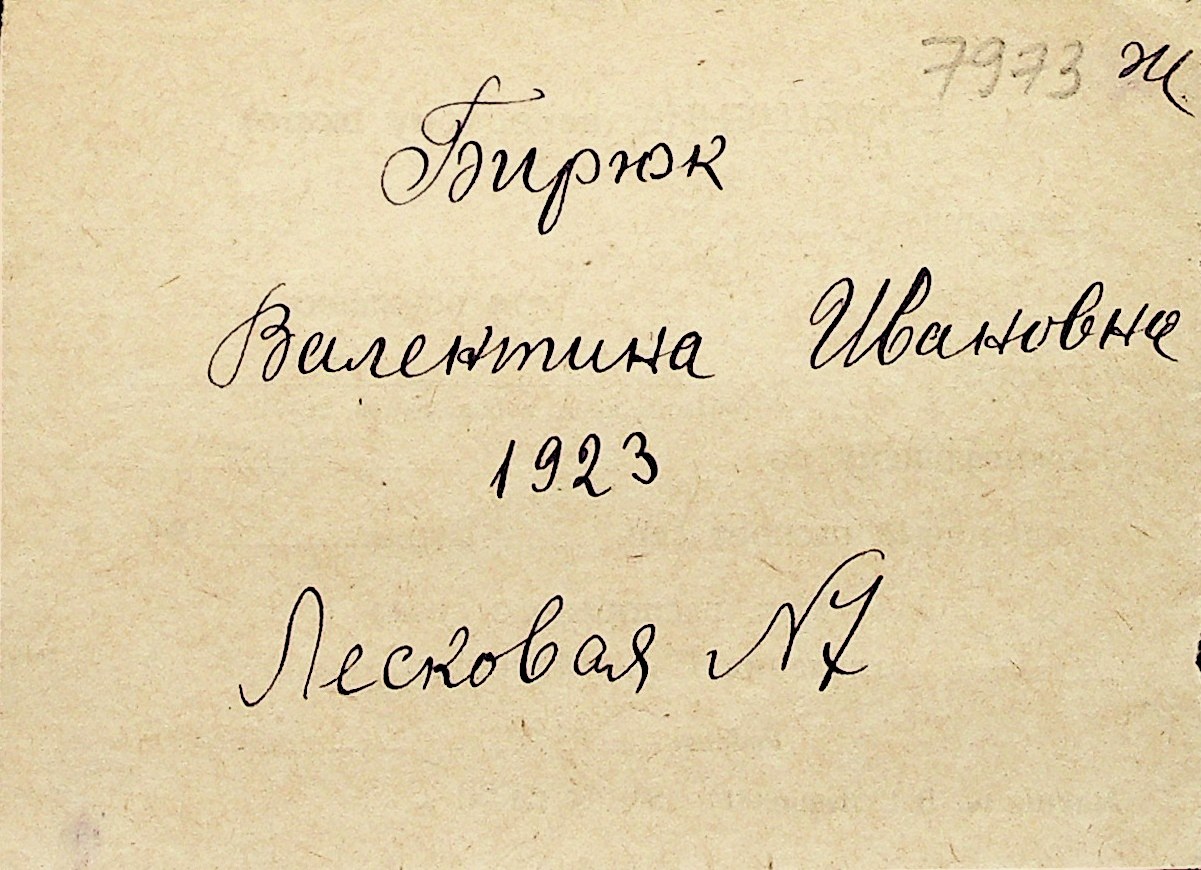 7973 ж
Бирюк
Валентина Ивановна
1923
Лесковая N7